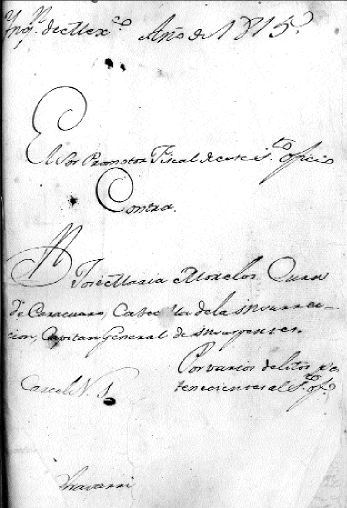 Ynqⁿ. de Mexᶜᵒ. Año de 1815.
El Sor Promotor Fiscal de este sᵗᵒ oficio
Contra
Jose Maria Morelos Cura
de Caracuaro, Cabecilla de la insurrec-
cion, Capitan General de insurgentes
Por varios delitos per
tenecientes al Sᵗᵒ ofᵒ.
Carcel N. 1